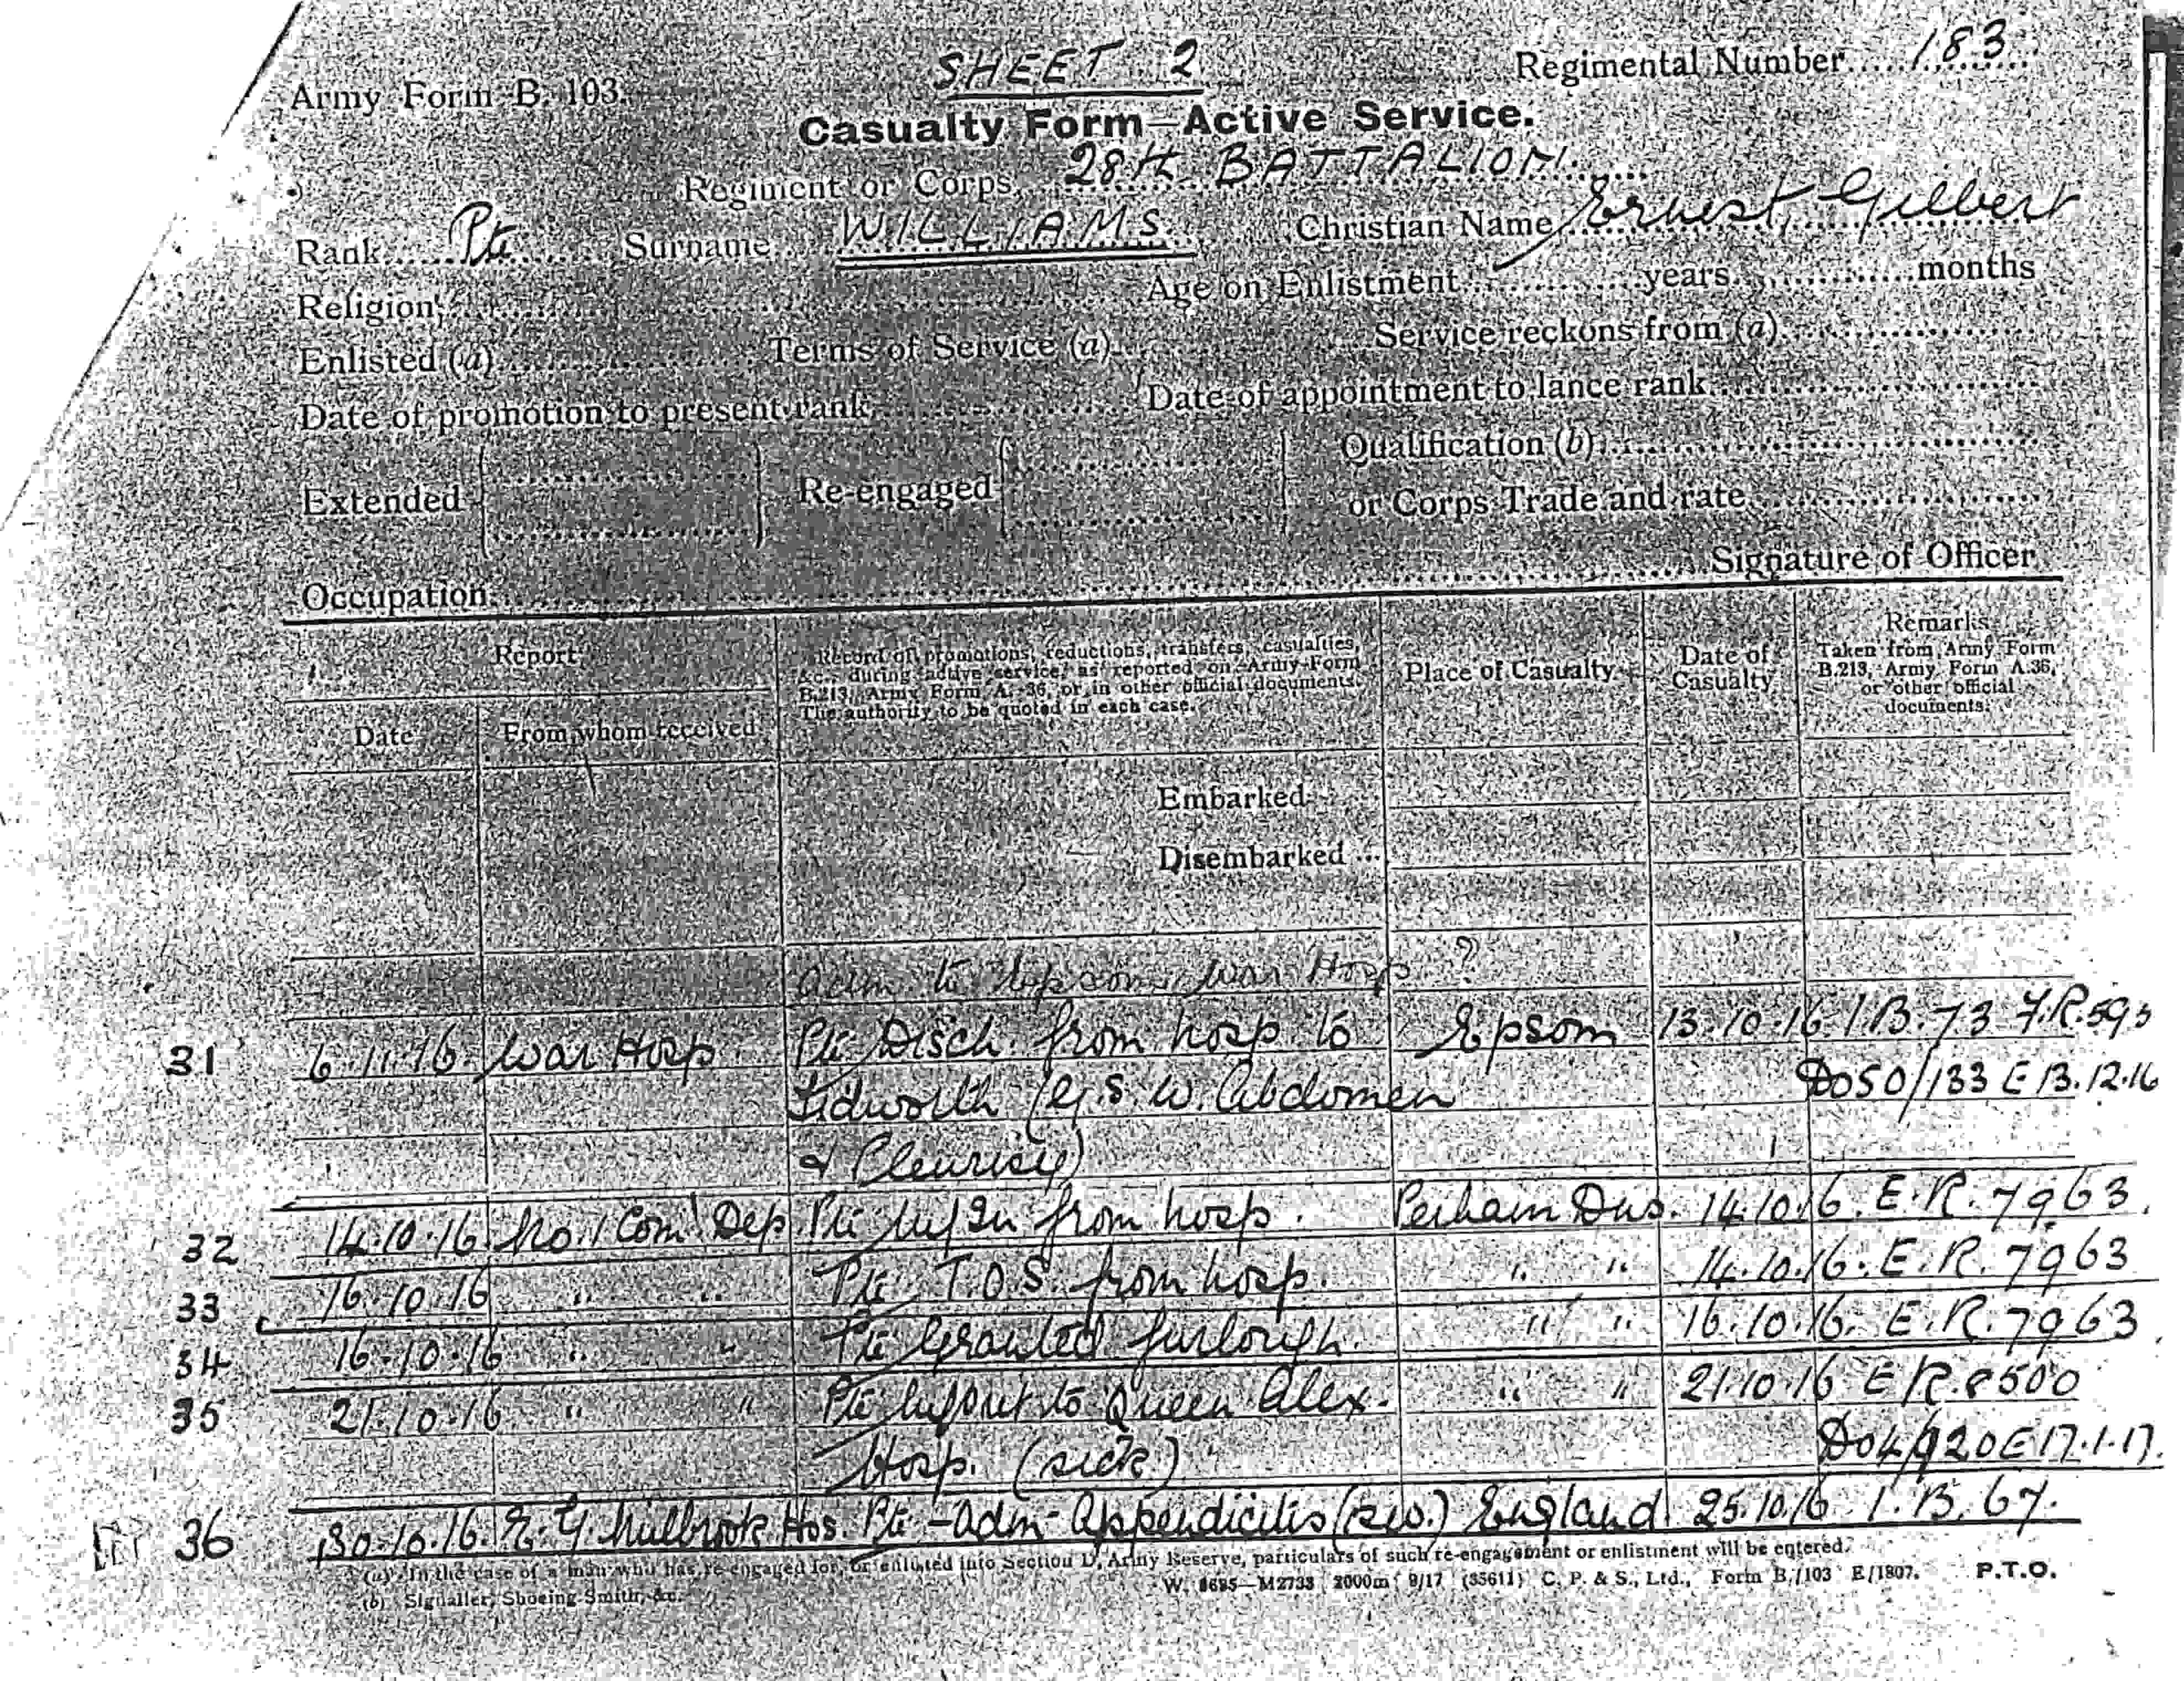 SHEET 2
Regimental Number 183
Army Form B. 103.
Casualty Form—Active Service.
Regiment or Corps 28th BATTALION.
Rank Pte Surname WILLIAMS. Christian Name Ernest, Gilbert
Religion Age on Enlistment years months
Enlisted (a) Terms of Service (a) Service reckons from (a)
Date of promotion to present rank Date of appointment to lance rank
Extended Re-engaged Qualification (b)
or Corps Trade and rate
Occupation Signature of Officer
Report
Date From whom received
Record of promotions, reductions, transfers, casualties,
&c., during active service, as reported on Army Form
B.213, Army Form A. 36, or in other official documents.
The authority to be quoted in each case.
Place of Casualty
Date of
Casualty
Remarks
Taken from Army Form
B.213, Army Form A.36,
or other official
documents.
Embarked
Disembarked ...
adm to Epsom War Hosp ?
31 6.11.16 War Hosp Pte Disch. from hosp to Epsom 13.10.16 I.B. 73 F.R. 595
Tidworth (G.S.W. Abdomen DO50/133 E 13.12.16
& Pleurisy)
32 14.10.16 No. 1 Com Dep. Pte In from hosp. Perham Dns. 14.10.16. E.R. 7963.
33 16.10.16 " " Pte T.O.S. from hosp. " " 14.10.16. E.R. 7963
34 16.10.16 " " Pte Granted furlough. " " 16.10.16. E.R. 7963
35 21.10.16 " " Pte to Queen Alex. " " 21.10.16 E R. 8500
Hosp. (sick) DO4/920E 17.1.17.
36 30.10.16. Milbrook Hos. Pte - adm - Appendicitis England 25.10.16 I.B. 67.
(a) In the case of a man who has re-engaged for, or enlisted into Section D, Army Reserve, particulars of such re-engagement or enlistment will be entered.
(b) Signaller, Shoeing Smith, &c. W. 8685—M2733 2000m 9/17 (35611) C. P. & S., Ltd., Form B./103 E/1807. P.T.O.